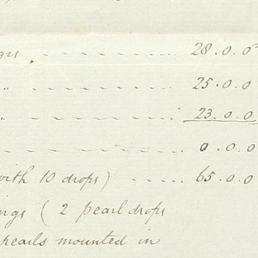 28.0.0
" 25.0.0
" 23.0.0
" 0.0.0
with 10 drops) 65.0.0
ngs (2 pearl drops
pearls mounted in